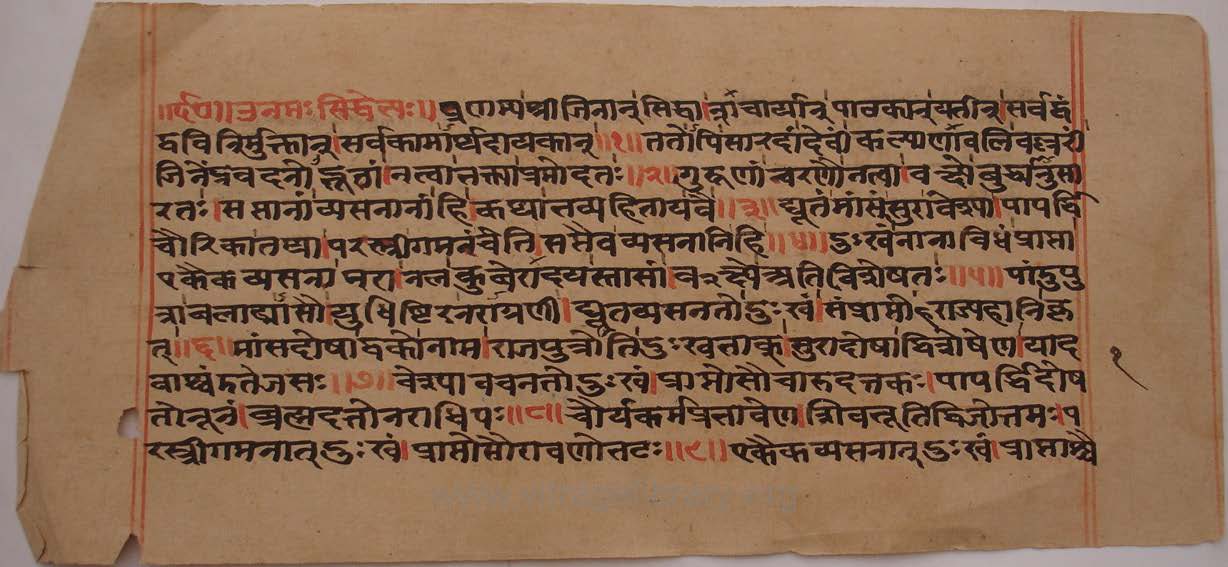 ॥ र्द०॥ उनमः सिद्धेभ्यः॥ प्रणम्य श्रीजिनान् सिद्धानाचार्यान् पाठकान् यतीन् सर्वद्वं
द्वविनिर्मुक्तान् सर्वकामार्थदायकान् ॥१॥ ततोपि सारदां देवीं कल्याणावलिवल्लरीं
जिनेंद्रवदनोद्भूतां नत्वा भक्त्या प्रमोदतः ॥२॥ गुरूणां चरणौ नत्वा वक्ष्ये बुद्ध्यनुसा
रतः सप्तानां व्यसनानां हि कथा भव्यहिताय वै ॥३॥ द्यूतं मांसं सुरा वेश्या पापर्द्धि
चौरिका तथा परस्त्रीगमनं चेति सप्तैव व्यसनानि हि ॥४॥ दुःखं नानाविधं प्राप्ता
एकैकव्यसना नरा नलकुबेरादयस्तासां वक्ष्ये अतिविशेषतः ॥५॥ पांडुपु
त्राचलाद्यासौ युधिष्टिरनरायणी द्यूतव्यसनतो दुःखं संप्राप्तो हि राज्यहानिकृ
त् ॥६॥ मांसदोषाद्वको नाम राजपुत्रोतिदुःखभाक् सुरादोषाद्विशेषेण याद
वा भ्रतेजसः ॥७॥ वेश्याववचनतो दुःखं प्राप्तोसौ चारुदत्तकः पापर्द्धिदोष
तो नूनं ब्रह्मदत्तो नराधिपः ॥८॥ चौर्यकर्मप्रभावेण शिवभूतिद्विजोत्तमः प
रस्त्रीगमनात् दुःखं प्राप्तोसौ रावणो भटः ॥९॥ एकैकव्यसनात् दुःखं प्राप्ताश्चै
१
www.